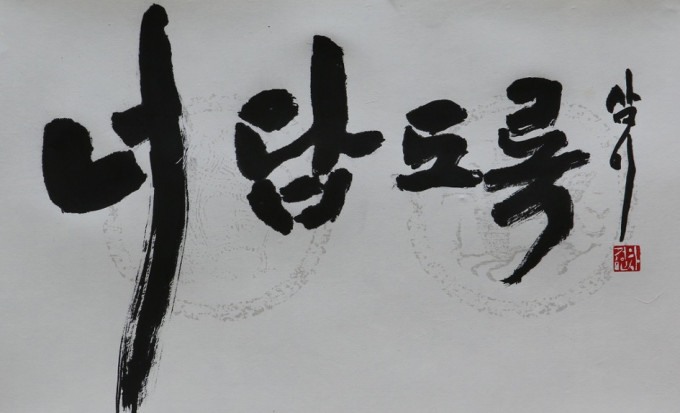 너답도록